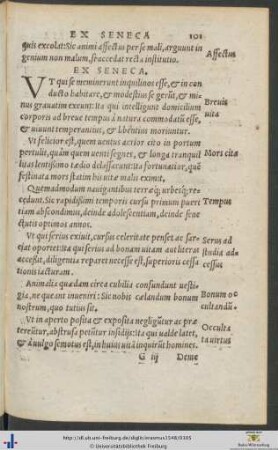 EX SENECA 101
quis excolat: Sic animi affectus per se mali, arguunt in
genium non malum, si accedat recta institutio. Affectus
EX SENECA.
VT qui se meminerunt inquilinos esse, & in con
ducto habitare, & modestius se gerūt, & mi
nus grauatim exeunt: ita qui intelligunt domicilium
corporis ad breue tempus à natura commodatū esse,
& uiuunt temperantius, & libentius moriuntur.
Breuis
uita
Vt felicior est, quem uentus acrior cito in portum
pertulit, quàm quem uenti segnes, & longa tranquil
litas lentissimo tædio delassarunt: ita fortunatior, quē
festinata mors statim his uitæ malis eximit.
Mors cita
Quemadmodum nauigantibus terræq; urbesq; re-
cedunt. Sic rapidissimi temporis cursu primùm pueri
tiam abscondimus, deinde adolescentiam, deinde sene
ctutis optimos annos.
Tempus
Vt qui serius exiuit, cursus celeritate penset ac sar-
ciat oportet: ita qui serius ad bonam uitam aut literas
accessit, diligentia reparet necesse est, superioris cessa
tionis iacturam.
Serus ad
studia ac-
cessus
Animalia quædam circa cubilia confundunt uesti-
gia, ne queant inueniri: Sic nobis cælandum bonum
nostrum, quo tutius sit.
Bonum oc
cultandū.
Vt in aperto posita & exposita negligūtur ac præ
tereūtur, abstrusa petūtur insidijs: ita qui ualde latet,
& à uulgo semotus est, in huius uitā inquirūt homines.
Occulta
ta uirtus
G iij Deme
http://dl.ub.uni-freiburg.de/diglit/erasmus1548/0105
© Universitätsbibliothek Freiburg
Baden-Württemberg